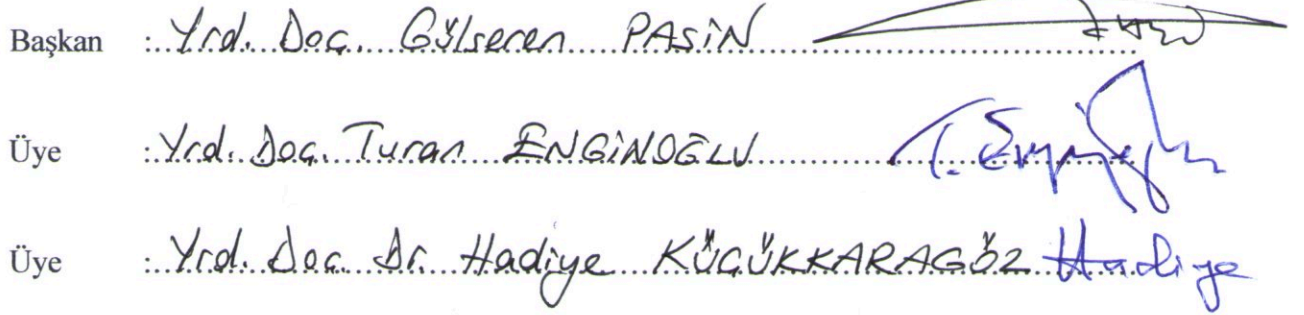 Başkan : Yrd. Doç. Gülseren PASİN
Üye : Yrd. Doç. Turan ENGİNOĞLU T. Enginoğlu
Üye : Yrd. Doç. Dr. Hadiye KÜÇÜKKARAGÖZ Hadiye